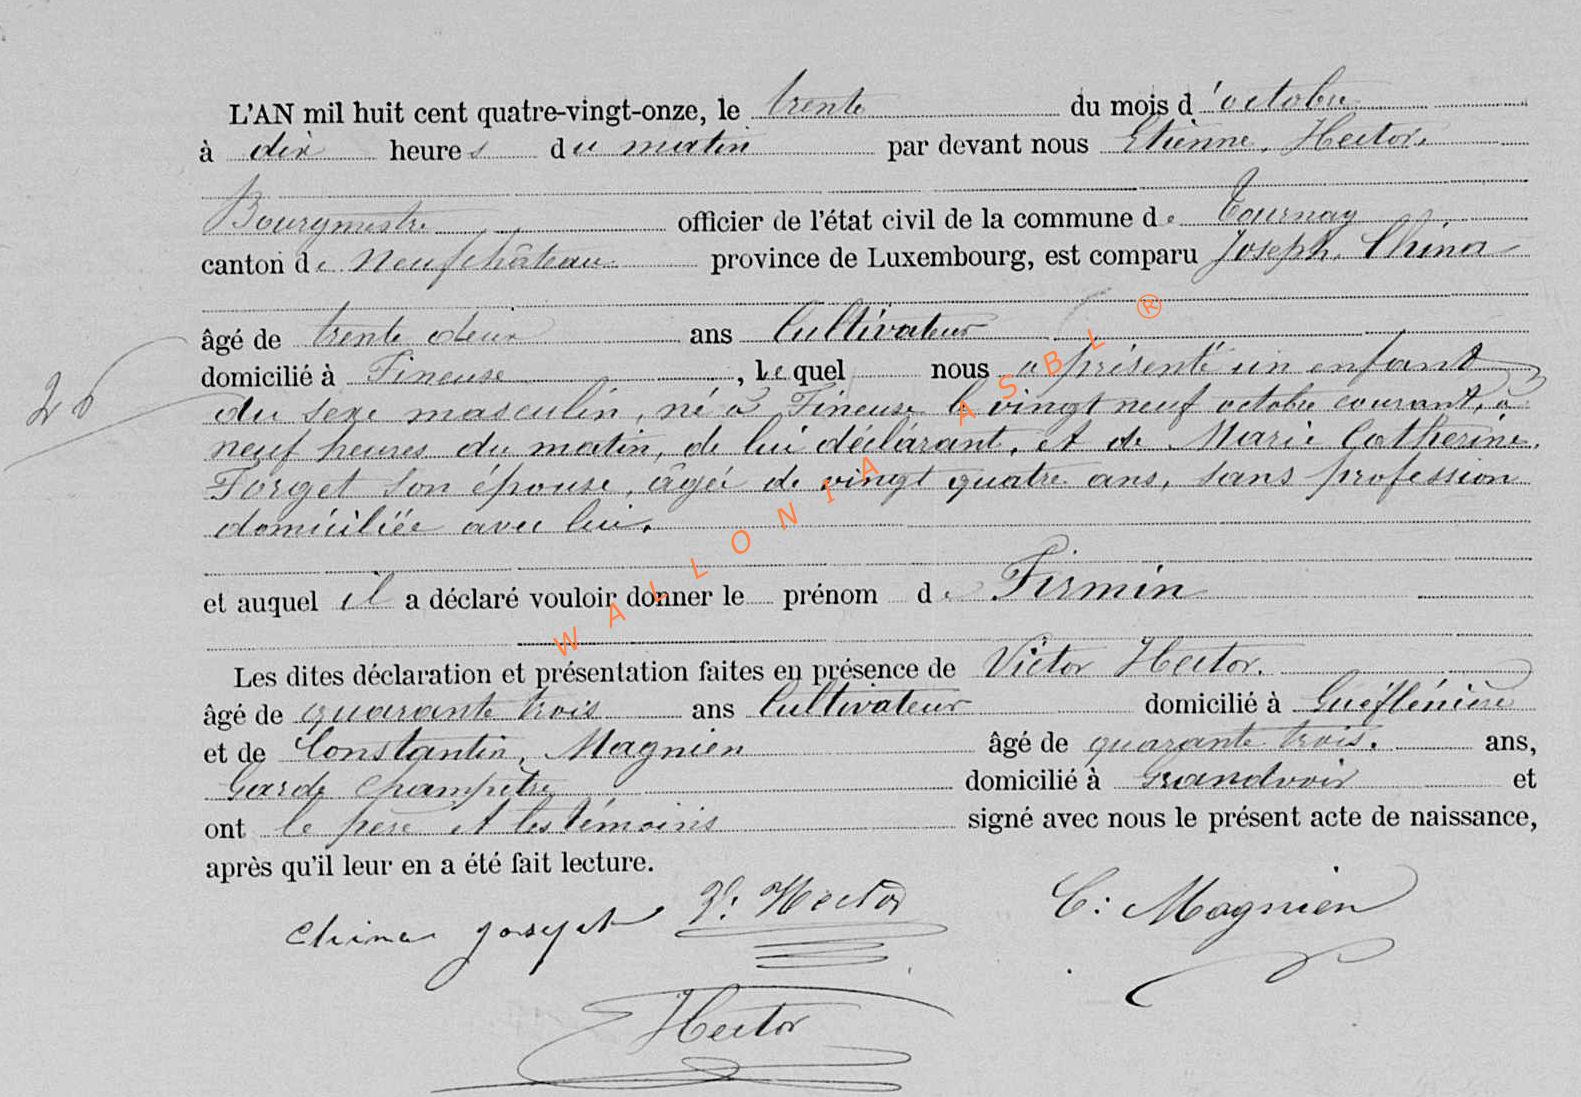 L'AN mil huit cent quatre-vingt-onze, le trente du mois d'octobre
à dix heures du matin par devant nous Etienne, Hector,
Bourgmestre officier de l'état civil de la commune de Tournay
canton de Neufchâteau province de Luxembourg, est comparu Joseph, China
âgé de trente deux ans Cultivateur
domicilié à Fineuse, lequel nous a présenté un enfant
26
du sexe masculin, né à Fineuse le vingt neuf octobre courant, à
neuf heures du matin, de lui déclarant, et de Marie Catherine,
Forget son épouse, âgée de vingt quatre ans, sans profession
domiciliée avec lui.
et auquel il a déclaré vouloir donner le prénom de Firmin
Les dites déclaration et présentation faites en présence de Victor Hector,
âgé de quarante trois ans Cultivateur domicilié à
et de Constantin, Magnien âgé de quarante trois, ans,
Garde Champêtre domicilié à Grandvoir et
ont le père et les témoins signé avec nous le présent acte de naissance,
après qu'il leur en a été fait lecture.
China joseph V: Hector C: Magnien
Hector
WALLONIA ASBL ®